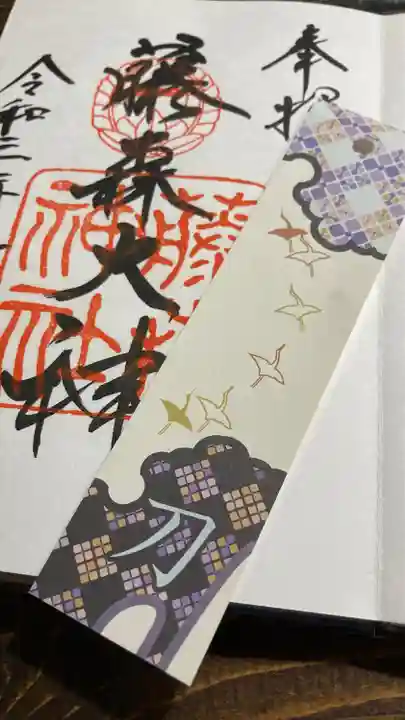 奉拝
藤森大神
藤森
神社
令和三年
刀